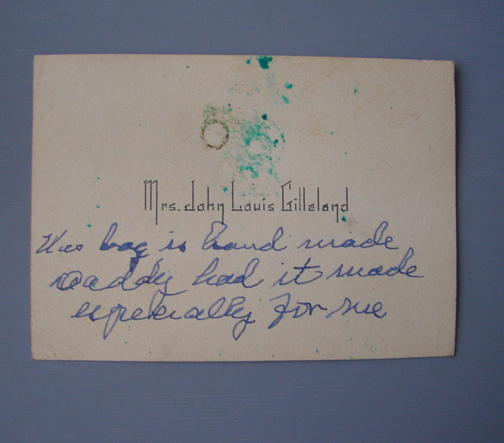 Mrs. John Louis Gilleland
This bag is hand made
Daddy had it made
especially for me